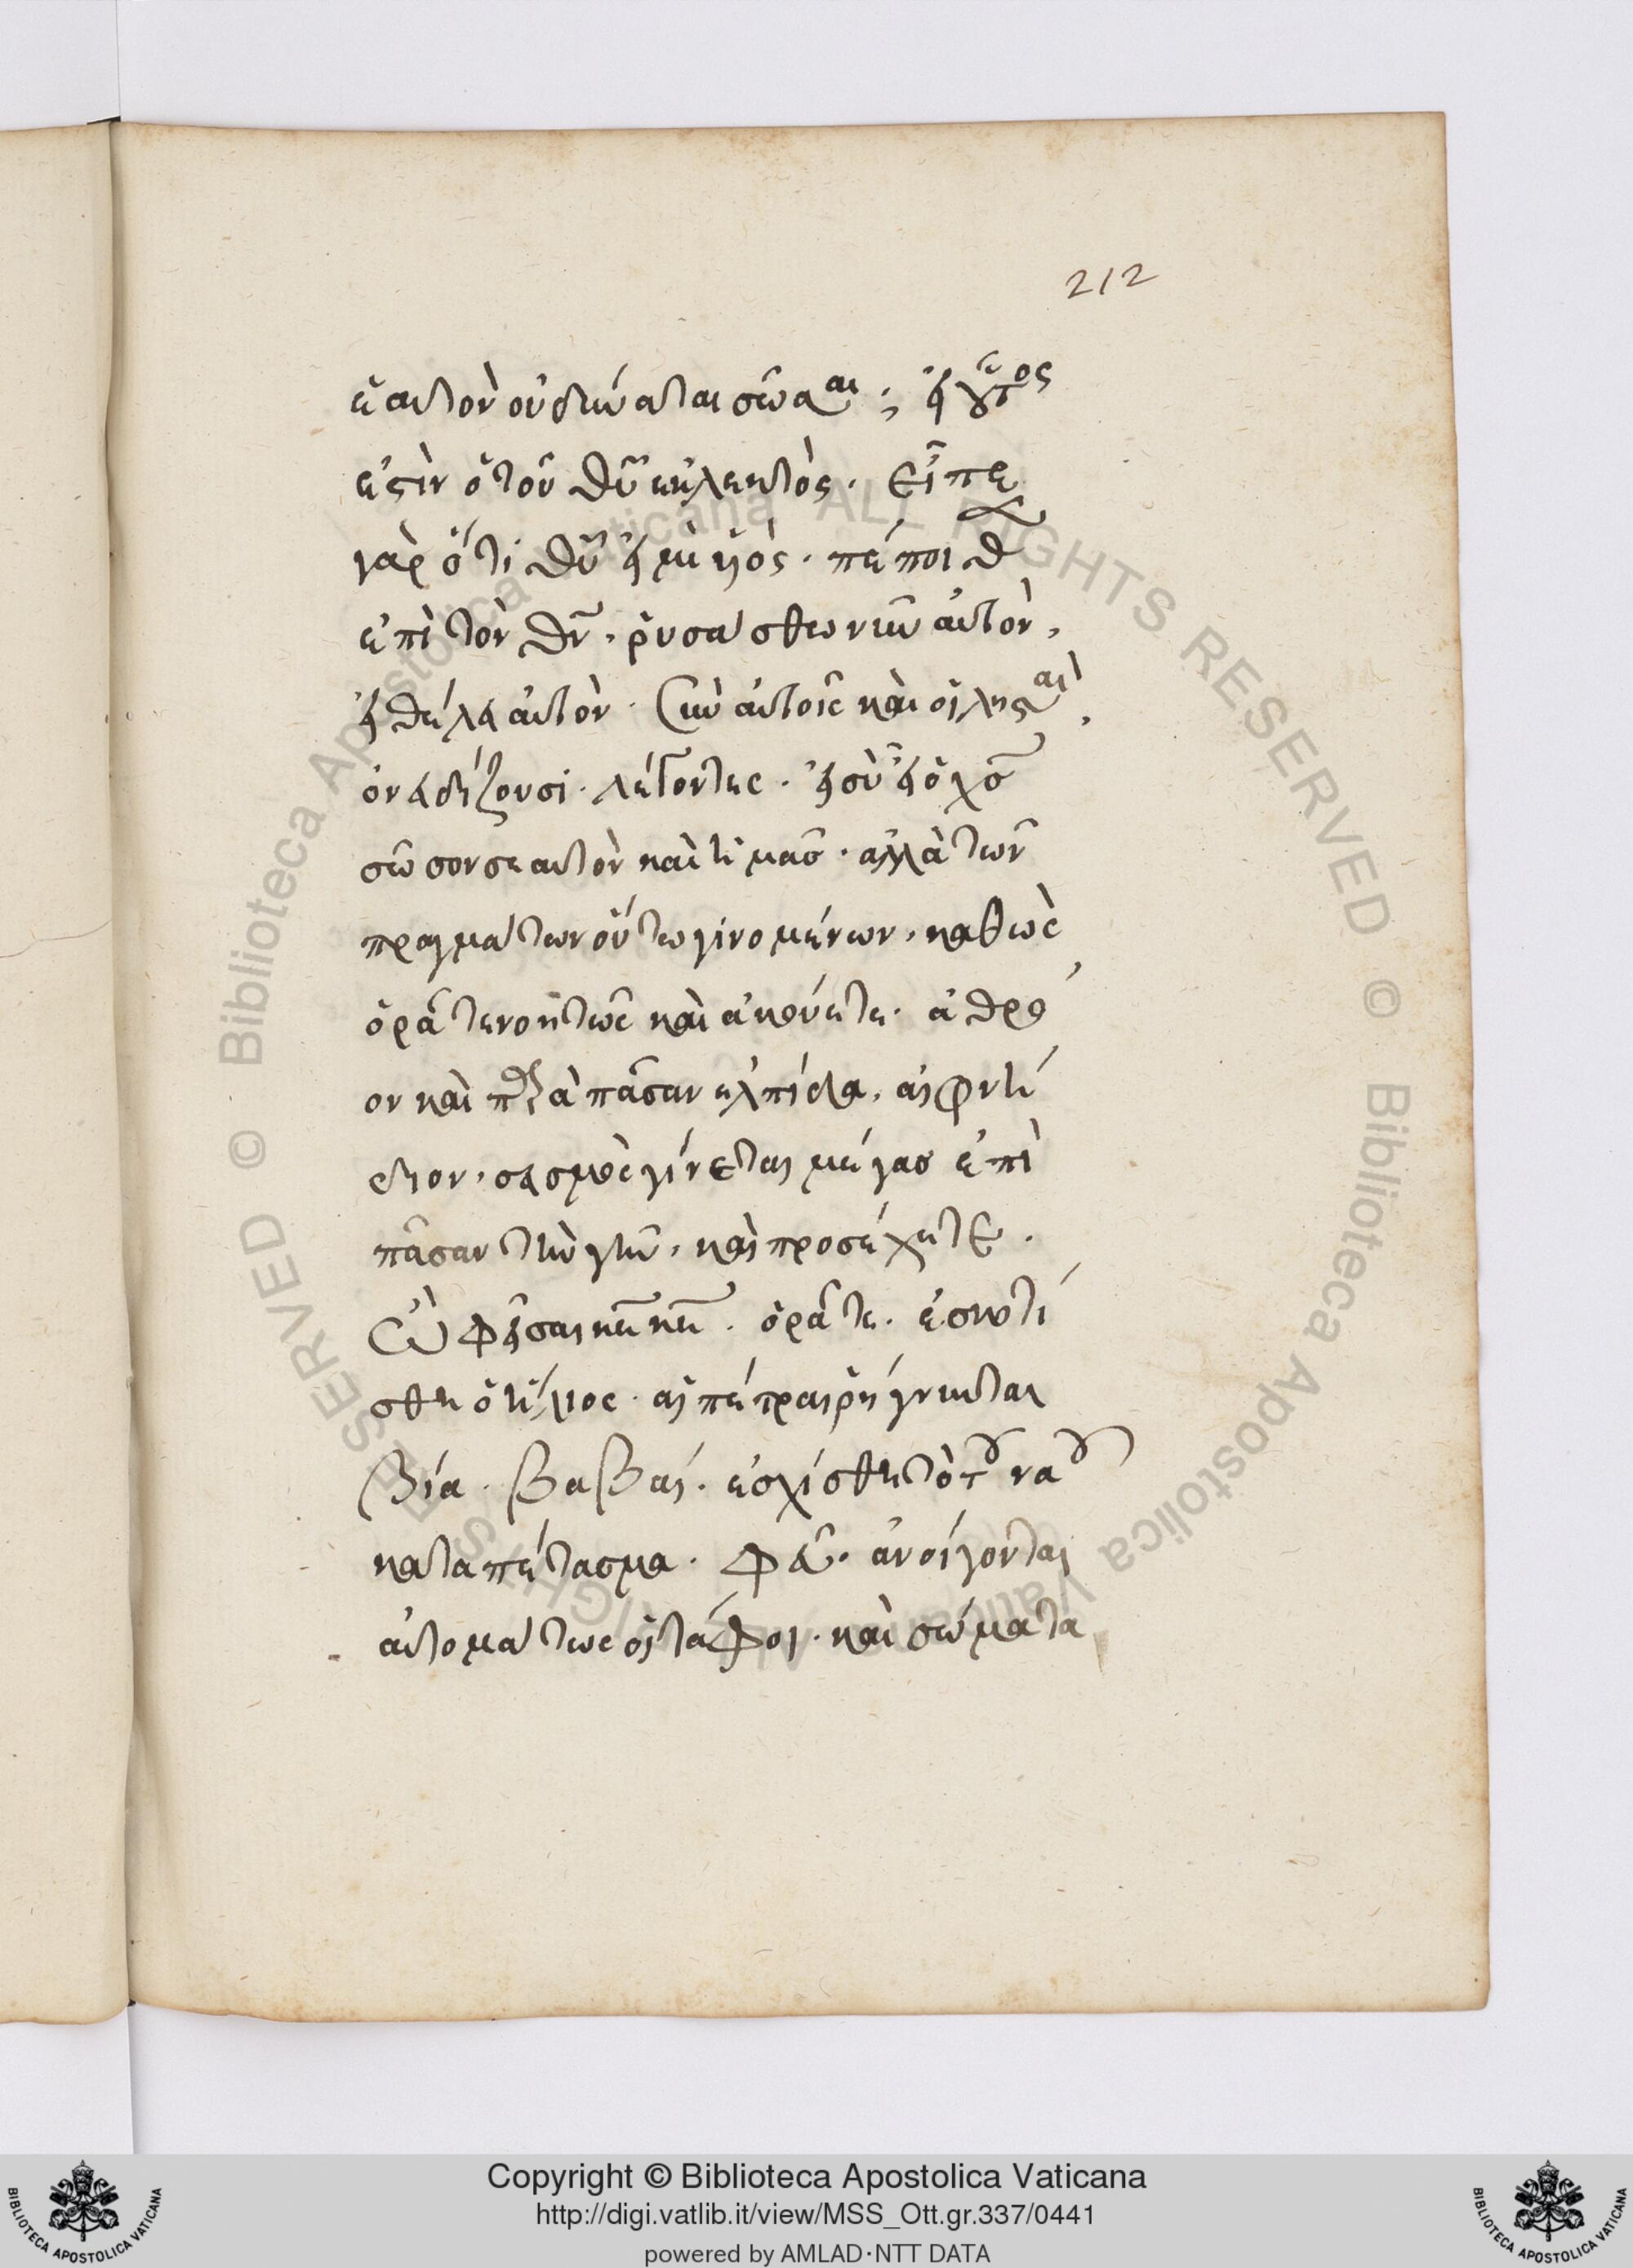 212
ἑαυτὸν οὐ δύναται σῶσαι; εἰ οὗτος
ἐστὶν ὁ τοῦ θῦ ἐκλεκτός. εἶπε
γὰρ ὅτι θῦ εἰμὶ υἱός. πέποιθεν
ἐπὶ τὸν θν, ῥυσάσθω νῦν αὐτὸν,
εἰ θέλει αὐτόν. Σὺν αὐτοῖς καὶ οἱ λησταὶ,
ὀνειδίζουσι λέγοντες. εἰ σὺ εἶ ὁ χς
σῶσον σεαυτὸν καὶ ἡμᾶς. ἀλλὰ τῶν
πραγμάτων οὕτω γινομένων, καθὼς
ὁρᾶτε νοητῶς καὶ ἀκούετε. ἀθρό
ον καὶ παρὰ πᾶσαν ἐλπίδα, αἰφνί
διον, σεισμὸς γίνεται μέγας ἐπὶ
πᾶσαν τὴν γῆν, καὶ προσέχετε.
ὁρᾶτε. ἐσκοτί
σθη ὁ ἥλιος. αἱ πέτραι ῥήγνυνται
βία. βαβαί. ἐσχίσθη τὸ τοῦ ναοῦ
καταπέτασμα. φεῦ. ἀνοίγονται
αὐτομάτως οἱ τάφοι. καὶ σώματα
Copyright © Biblioteca Apostolica Vaticana
http://digi.vatlib.it/view/MSS_Ott.gr.337/0441
powered by AMLAD·NTT DATA
BIBLIOTECA APOSTOLICA VATICANA
BIBLIOTECA APOSTOLICA VATICANA
© Biblioteca Apostolica Vaticana ALL RIGHTS RESERVED © Biblioteca Apostolica Vaticana ALL RIGHTS RESERVED